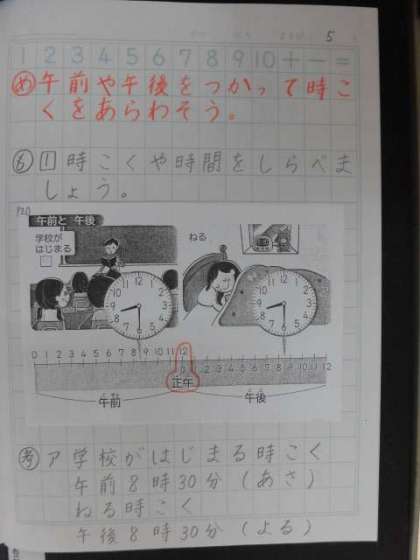 5
1 2 3 4 5 6 7 8 9 10 + − =
め 午前や午後をつかって時こ
くをあらわそう。
6 1 時こくや時間をしらべま
しょう。
P20
午前と 午後
学校が
はじまる
ねる
12 1 2 3 4 5 6 7 8 9 10 11
12 1 2 3 4 5 6 7 8 9 10 11
0 1 2 3 4 5 6 7 8 9 10 11 12
0 1 2 3 4 5 6 7 8 9 10 11 12
正午
午前
午後
考 ア 学校がはじまる時こく
午前8時30分(あさ)
ねる時こく
午後8時30分(よる)